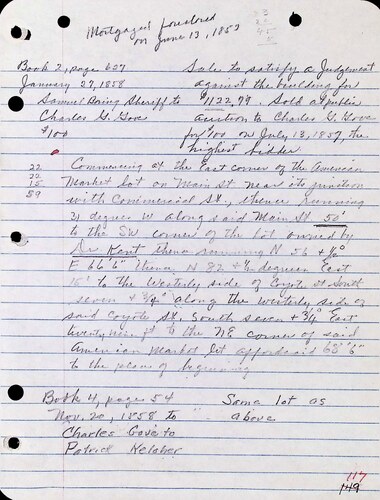 Mortgaged foreclosed
on June 13, 1857
Book 2, page 627
January 27, 1858
Samuel Boring Sheriff to
Charles G. Gove
$100
Sale to satisfy a Judgement
against the building for
$1122.79. Sold at public
auction to Charles G. Gove
for $100 on July 13, 1857, the
highest bidder
22
22
15
59
Commencing at the East corner of the American
Market Lot on Main St near its junction
with Commercial St., thence running
degrees W along said Main St. 50'
to the SW corner of the lot owned by
Dr. Kent thence running N 56 + ½°
E 66'6" thence N 32 + ¼ degrees East
15' to the Westerly side of Coyote St South
seven + ¾° along the westerly side of
said Coyote St, South seven + ¾° East
twenty nine ft to the NE corner of said
American Market lot 68'6"
to the place of beginning
Book 4, page 54
Nov. 20, 1858 to
Charles Gove to
Patrick Kelcher
Same lot as
above
117
149